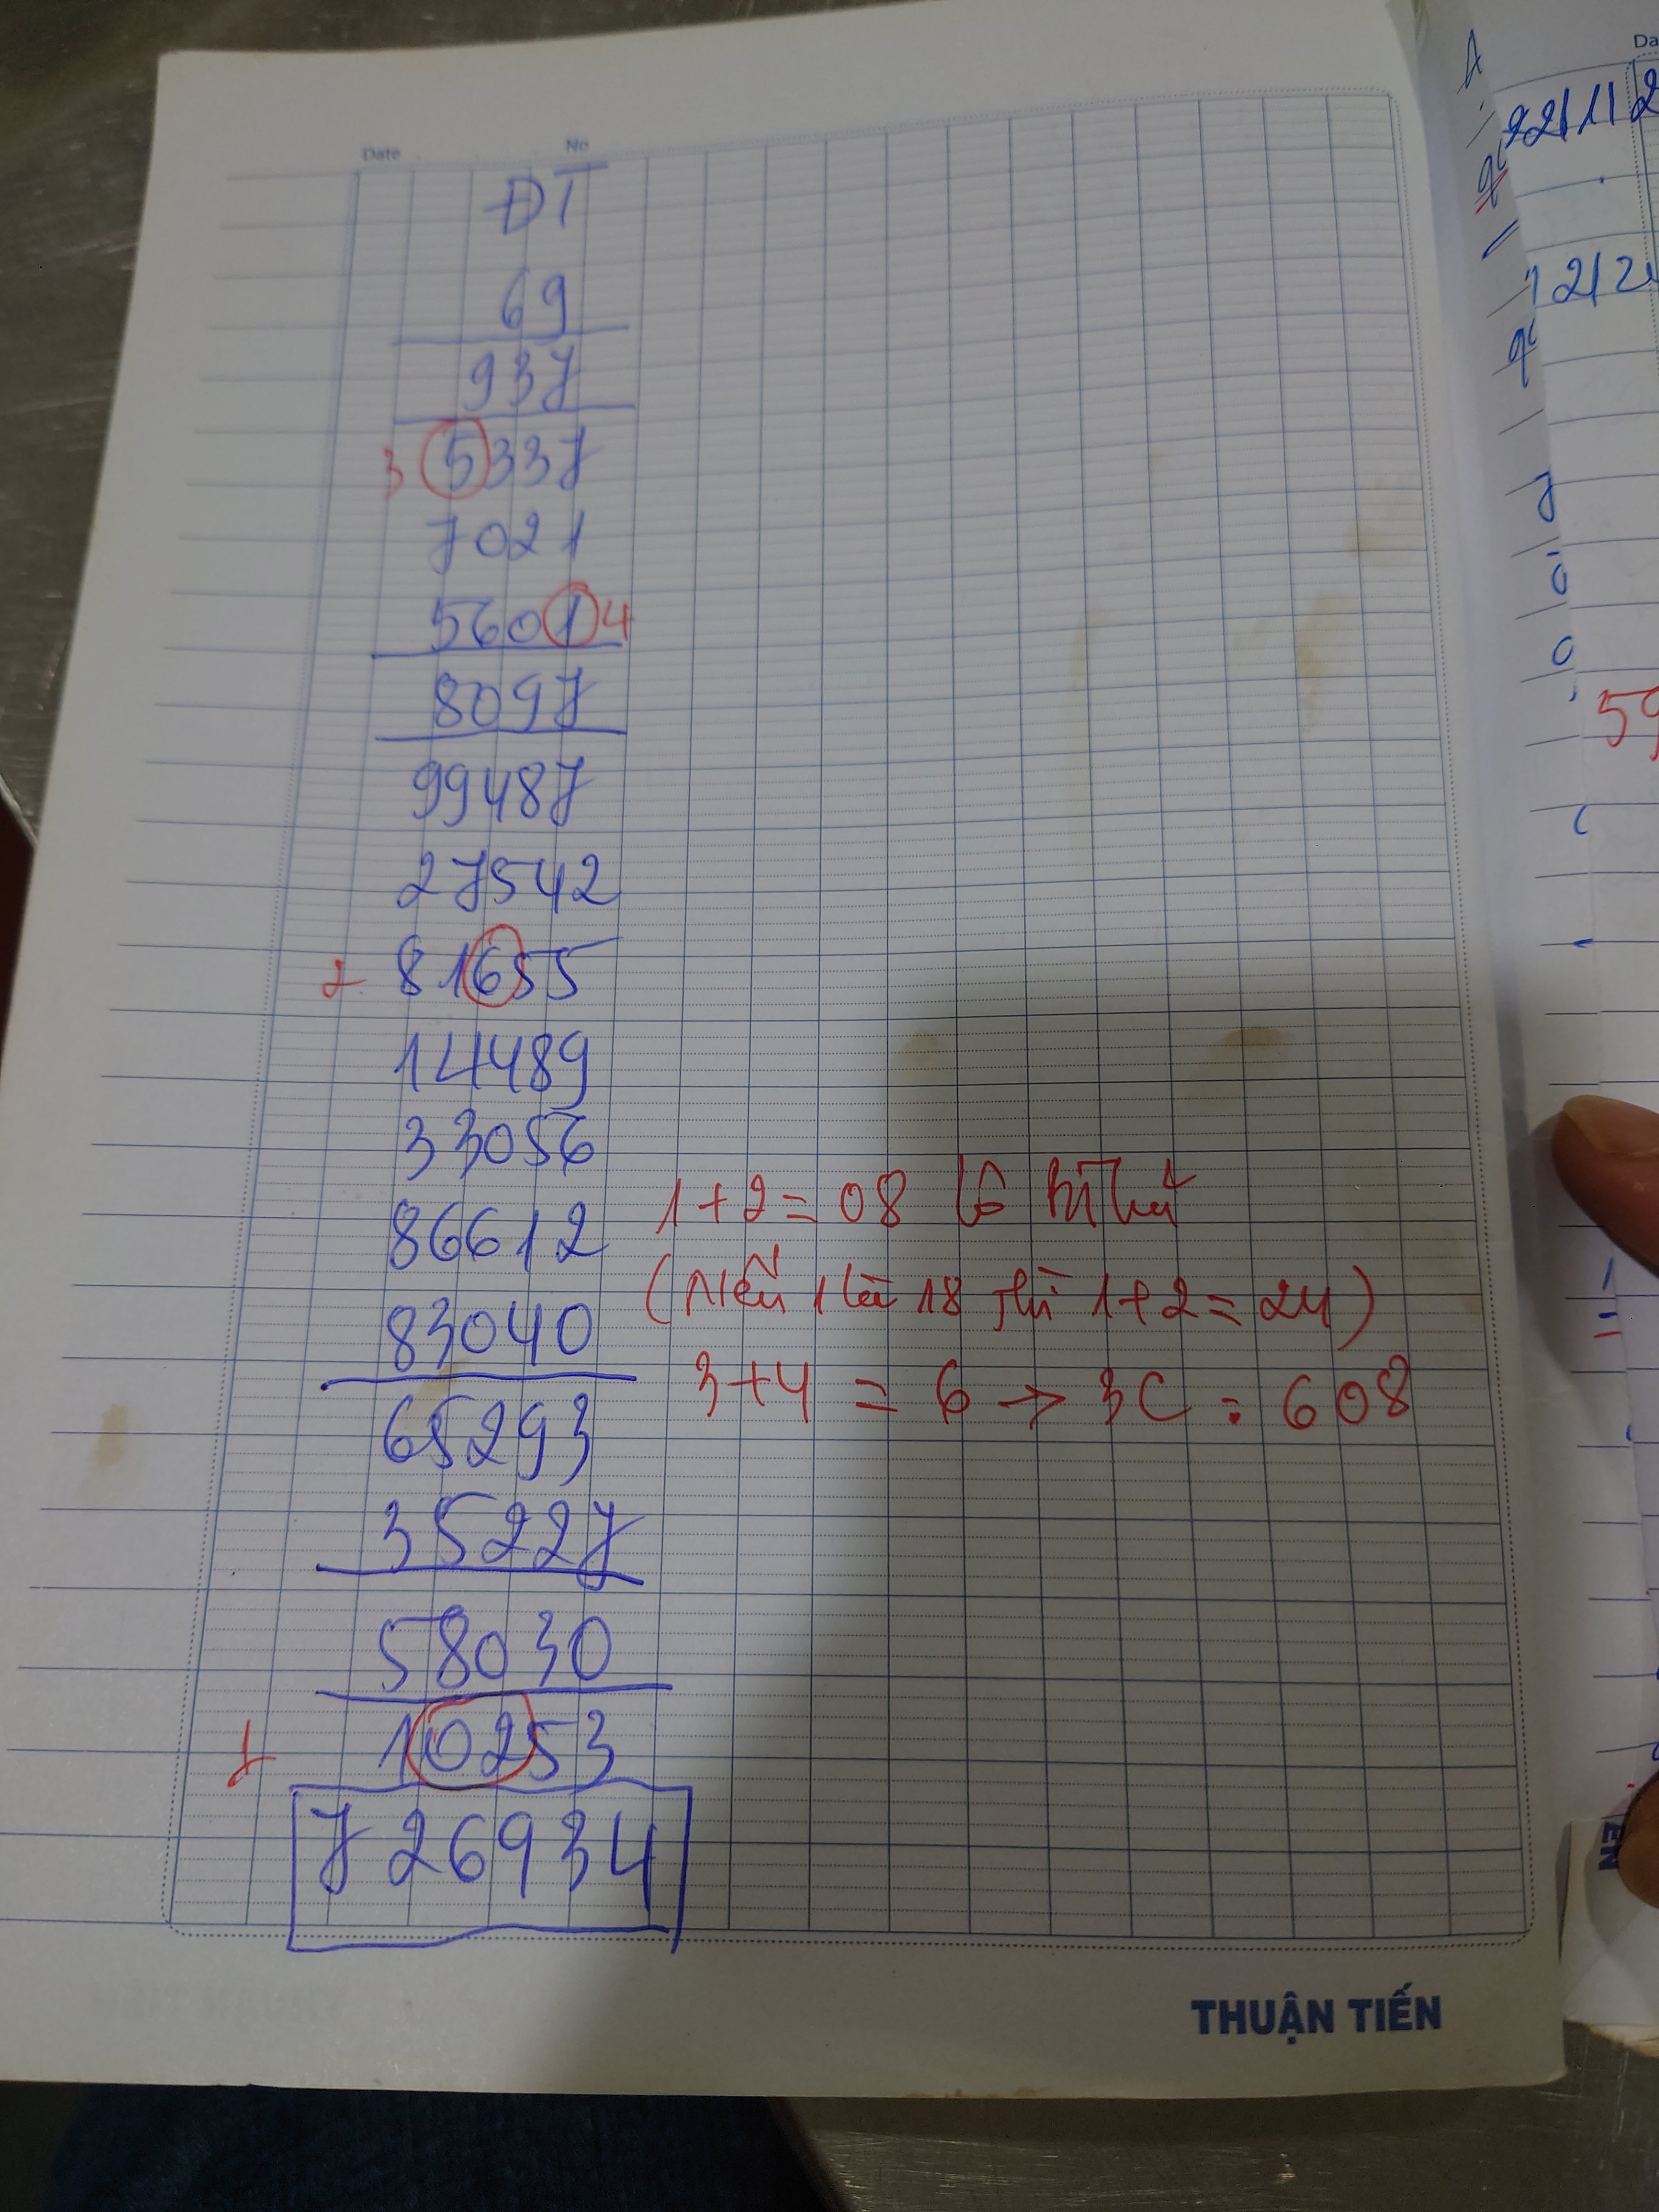 Date No
ĐT
69
937
3 5337
7021
5601 4
8097
99487
27542
2 81655
14489
33056
86612
83040
65293
35227
58030
1 10253
726934
1+2=08 lô
(Nếu 1 là 18 thì 1+2=24)
3+4 = 6 → 3C : 608
THUẬN TIẾN
Da
22/11/2
12/2
59